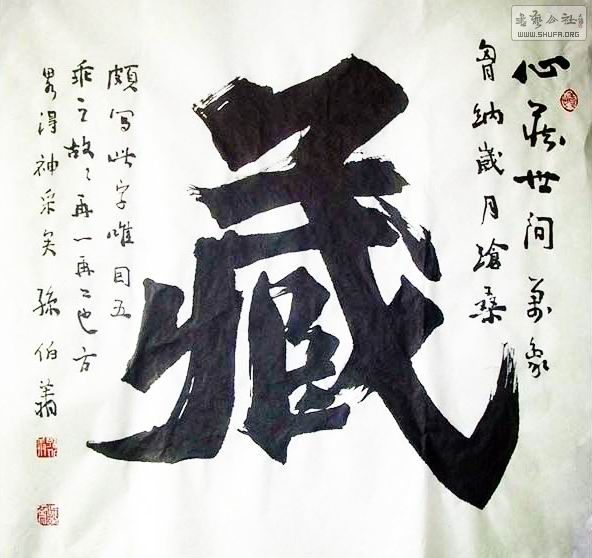 心藏世间萬象
胷納歲月滄桑
藏
頗写此字唯因五
乖之故〻再一再二也方
畧得神采矣 孫伯翔
書藝公社
WWW.SHUFA.ORG